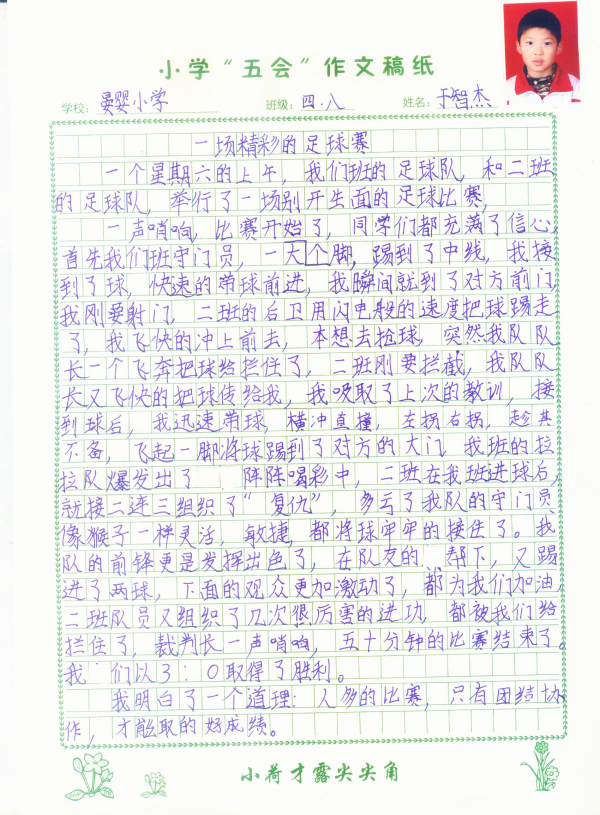 小学“五会”作文稿纸
学校: 晏婴小学 班级: 四.八 姓名: 于智杰
一场精彩的足球赛
一个星期六的上午，我们班的足球队，和二班
的足球队，举行了一场别开生面的足球比赛，
一声哨响，比赛开始了，同学们都充满了信心，
首先我们班守门员，一大个脚，踢到了中线，我接
到了球，快速的带球前进，我瞬间就到了对方前门，
我刚要射门，二班的后卫用闪电般的速度把球踢走
了，我飞快的冲上前去，本想去抢球，突然我队队
长一个飞奔把球给拦住了，二班刚要拦截，我队队
长又飞快的把球传给我，我吸取了上次的教训，接
到球后，我迅速带球，横冲直撞，左拐右拐，趁其
不备，飞起一脚将球踢到了对方的大门，我班的拉
拉队爆发出了 阵阵喝彩中，二班在我班进球后，
就接二连三组织了“复仇”，多亏了我队的守门员
像猴子一样灵活，敏捷，都将球牢牢的接住了。我
队的前锋更是发挥出色了，在队友的 帮下，又踢
进了两球，下面的观众更加激动了，都为我们加油，
二班队员又组织了几次很厉害的进功，都被我们给
拦住了，裁判长一声哨响，五十分钟的比赛结束了。
我们以3:0取得了胜利。
我明白了一个道理：人多的比赛，只有团结协
作，才能取的好成绩。
小荷才露尖尖角